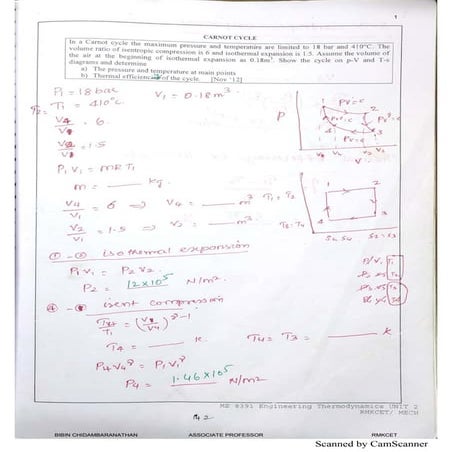 1
CARNOT CYCLE
In a Carnot cycle the maximum pressure and temperature are limited to 18 bar and 410°C. The
volume ratio of isentropic compression is 6 and isothermal expansion is 1.5. Assume the volume of
the air at the beginning of isothermal expansion as 0.18m³. Show the cycle on p-V and T-s
diagrams and determine
a) The pressure and temperature at main points
b) Thermal efficiency of the cycle. [Nov '12]
P1 = 18 bar
V1 = 0.18 m³.
T2 = T1 = 410°C
V4/V1 = 6.
V2/V1 = 1.5
P1V1 = mRT1
m = ____ kg.
V4/V1 = 6 ⇒ V4 = ____ m³
V2/V1 = 1.5 ⇒ V2 = ____ m³
P
1
2
3
4
V
T1 = T2
T3 = T4
1
2
3
4
S1 S4
S2 = S3
① - ② Isothermal expansion
P1V1 = P2V2.
P2 = 12×10⁵ N/m².
④ - ① isent compression
T4 = ____ K
T4 = T3 = ____ K
P4V4^γ = P1V1^γ
P4 = 1.46×10⁵ N/m²
ME 8391 Engineering Thermodynamics UNIT 2
RMKCET/ MECH
BIBIN CHIDAMBARANATHAN
ASSOCIATE PROFESSOR
RMKCET
Scanned by CamScanner